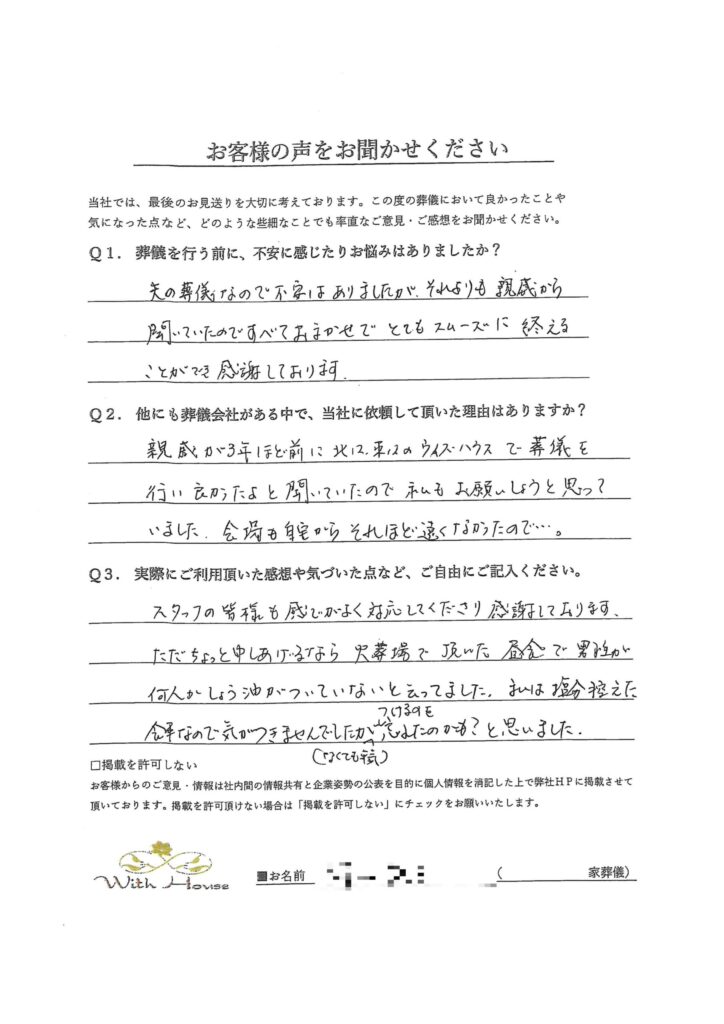 お客様の声をお聞かせください
当社では、最後のお見送りを大切に考えております。この度の葬儀において良かったことや
気になった点など、どのような些細なことでも率直なご意見・ご感想をお聞かせください。
Q1．葬儀を行う前に、不安に感じたりお悩みはありましたか？
夫の葬儀なので不安はありましたが、それよりも親戚から
聞いていたのですべておまかせでとてもスムーズに終える
ことができ感謝しております．
Q2．他にも葬儀会社がある中で、当社に依頼して頂いた理由はありますか？
親戚が3年ほど前に北12．東12のウィズハウスで葬儀を
行い良かったよと聞いていたので私もお願いしようと思って
いました．会場も自宅からそれほど遠くなかったので…。
Q3．実際にご利用頂いた感想や気づいた点など、ご自由にご記入ください。
スタッフの皆様も感じがよく対応してくださり感謝しております．
ただちょっと申しあげるなら火葬場で頂いた昼食で男性が
何人かしょう油がついていないと云ってました．私は塩分控えた
つけるのを
食事なので気がつきませんでしたが忘れたのかも？と思いました．
□掲載を許可しない
お客様からのご意見・情報は社内間の情報共有と企業姿勢の公表を目的に個人情報を消記した上で弊社HPに掲載させて
頂いております。掲載を許可頂けない場合は「掲載を許可しない」にチェックをお願いいたします。
With House
■お名前 （ 家葬儀）